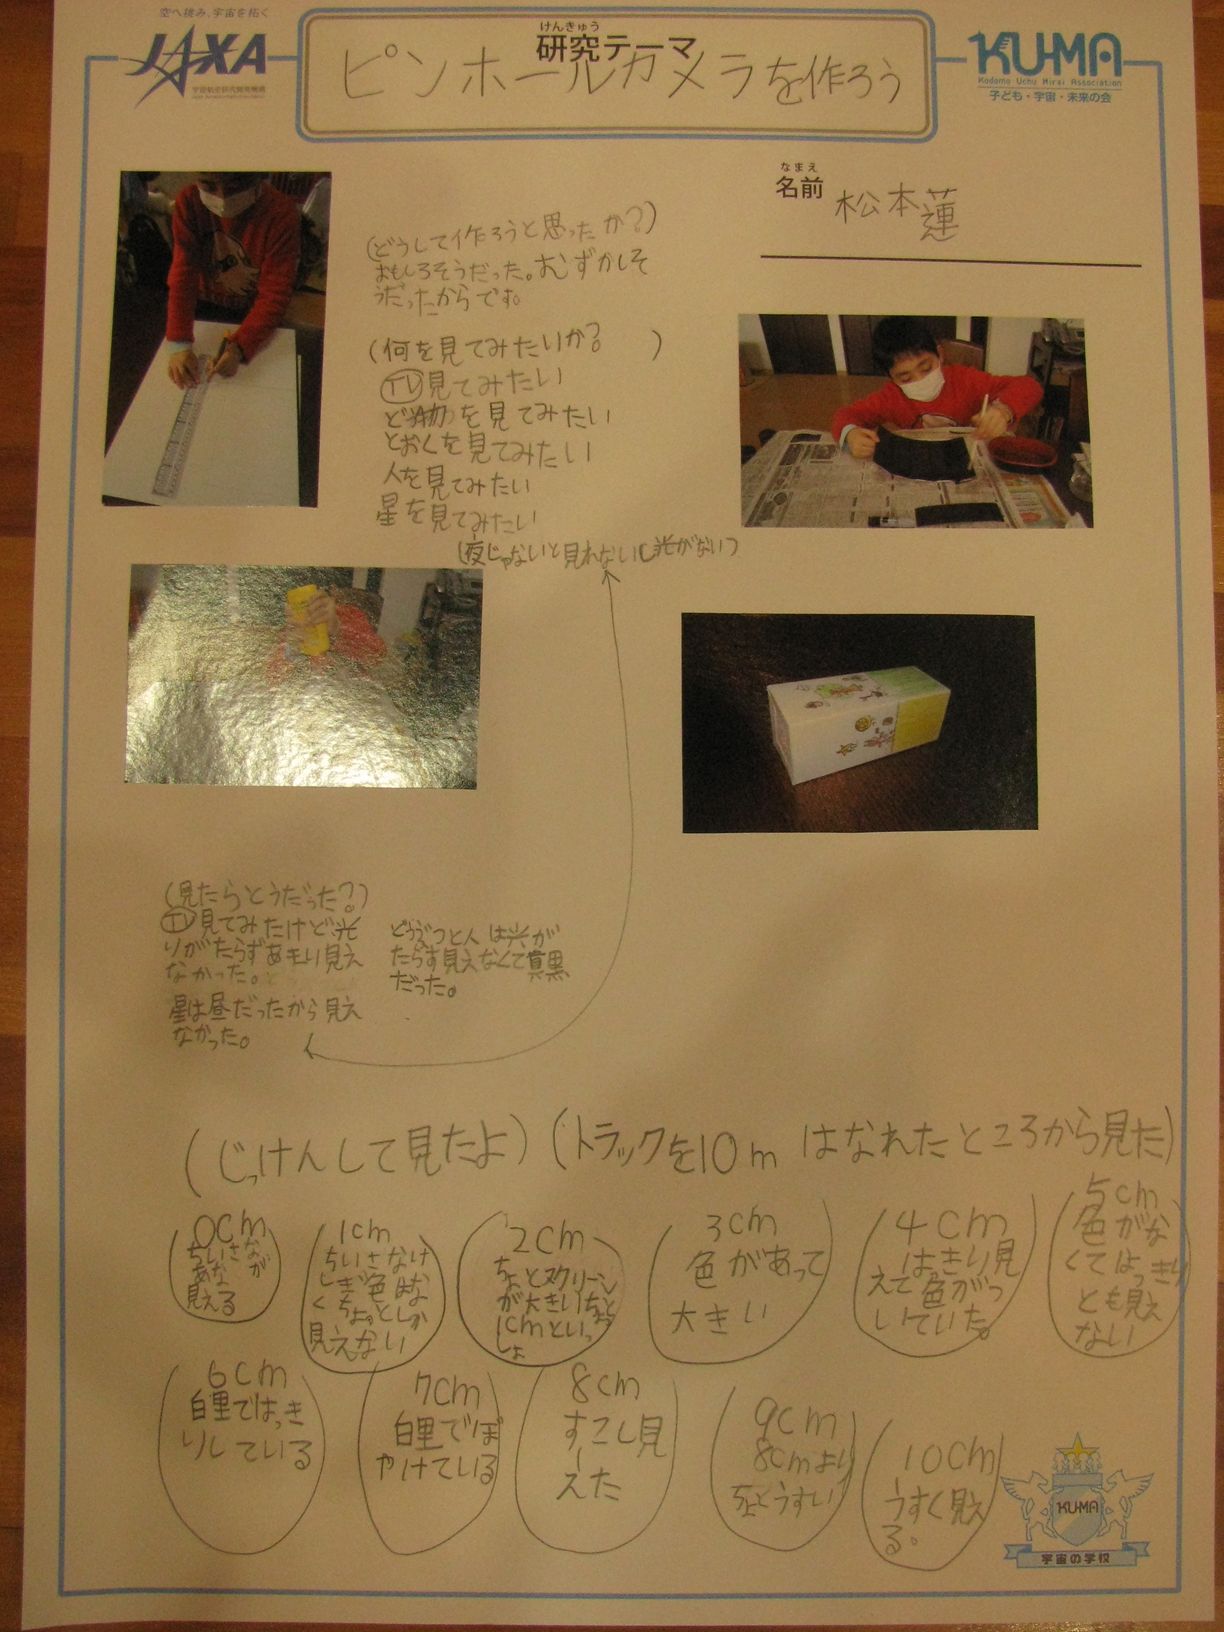 空へ挑み、宇宙を拓く
JAXA
宇宙航空研究開発機構
けんきゅう
研究テーマ
ピンホールカメラを作ろう
KU-MA
Kodomo Uchu Mirai Association
子ども・宇宙・未来の会
なまえ
名前
松本蓮
(どうして作ろうと思ったか?)
おもしろそうだった。むずかしそ
うだったからです。
(何を見てみたいか? )
TV見てみたい
ど物を見てみたい
とおくを見てみたい
人を見てみたい
星を見てみたい
(夜じゃないと見れない(光がない)
(見たらとうだった?)
TV見てみたけど光
りがたらずあまり見え
なかった。
星は昼だったから見え
なかった。
どうぶつと人は光が
たらす見えなくて真黒
だった。
(じっけんして見たよ)(トラックを10m はなれたところから見た)
0cm
ちいさな
あながな
見える
1cm
ちいさなけ
しき色はな
くちょっとしか
見えない
2cm
ちょとスクリーン
が大きいちょっと
1cmといっ
しょ
3cm
色があって
大きい
4cm
はっきり見
えて色がつ
いていた。
5cm
色がな
くてはっきり
とも見え
ない
6cm
白黒ではっき
りしている
7cm
白黒でぼ
やけている
8cm
すこし見
えた
9cm
8cmより
うすい
10cm
うすく見え
る。
KU-MA
宇宙の学校